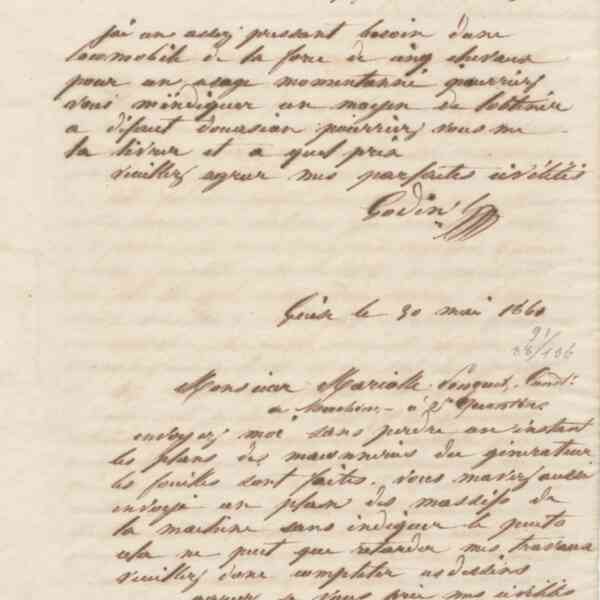 j'ai un assez pressant besoin d'une
locomobile de la force de cinq chevaux
pour un usage momentanné pourriez
vous m'indiquer un moyen de l'obtenir
a défaut d'occasion pourriez vous me
la livrer et a quel prix
veuillez agréer mes parfaites civilités
Godin
Guise le 30 mai 1860
91
136
Monsieur Mariolle
a St Quentin
envoyez moi sans perdre un instant
les plans des maconneries du générateur
les fouilles sont faites. vous m'avez aussi
envoyé un plan des massifs de
la machine sans indiquer le puits
cela ne peut que retarder mes travaux
veuillez donc completer ces dessins
je vous prie mes civilités